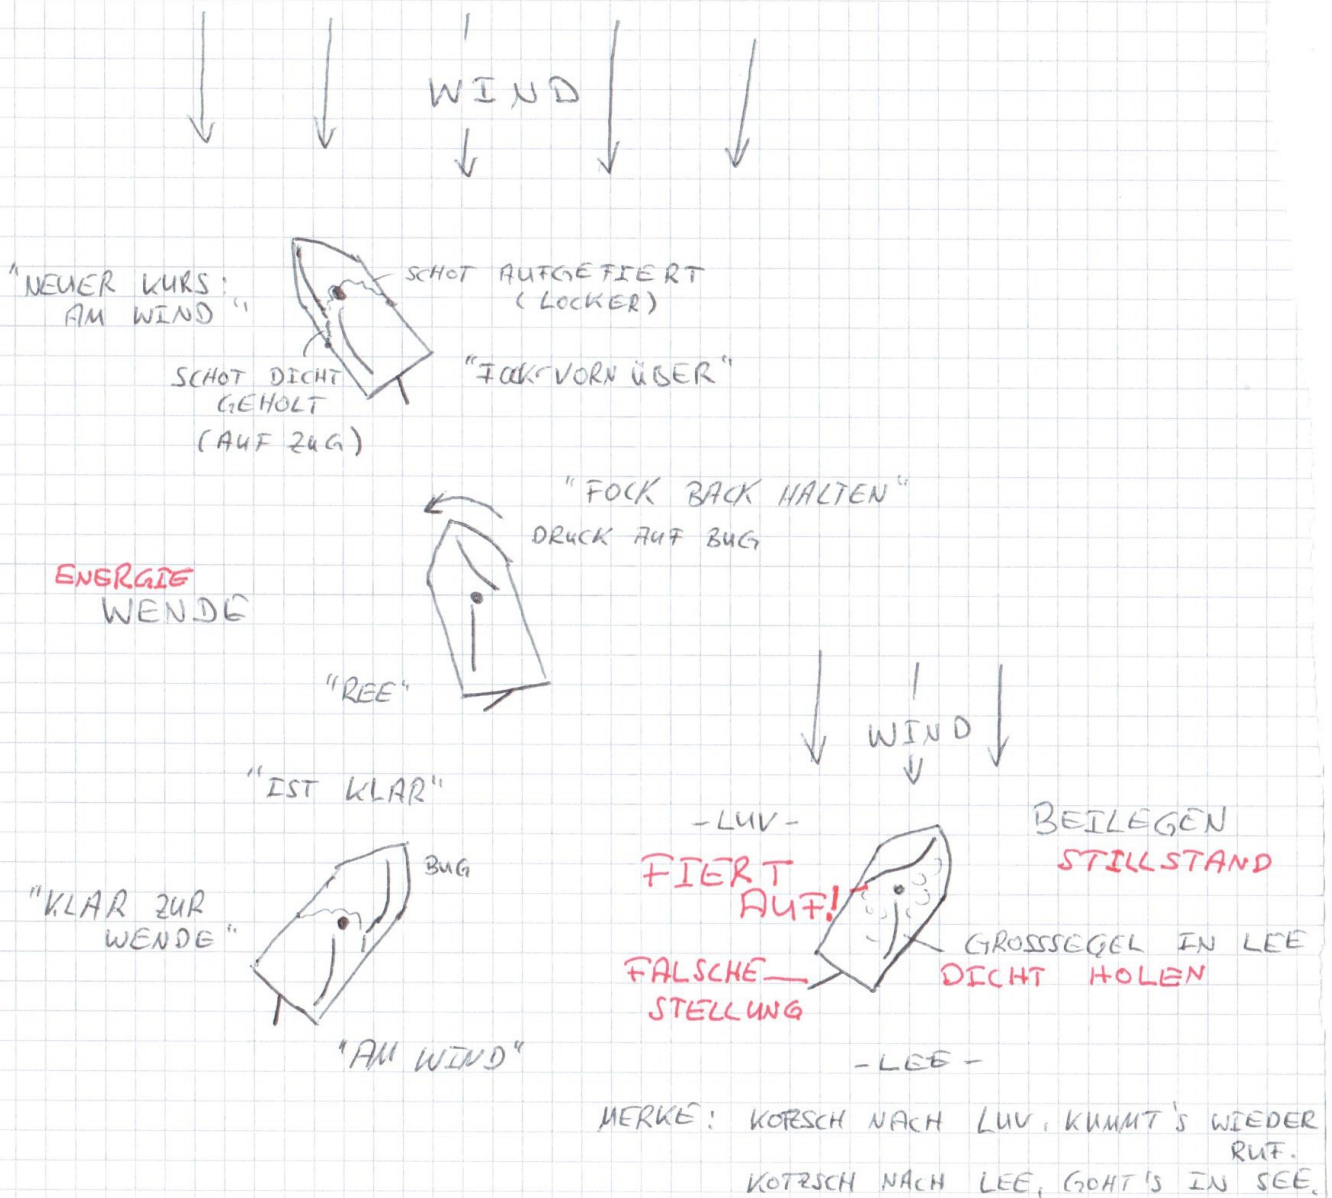 WIND
"NEUER KURS:
AM WIND"
SCHOT AUFGEFIERT
(LOCKER)
SCHOT DICHT
GEHOLT
(AUF ZUG)
"FOCK VORN ÜBER"
"FOCK BACK HALTEN"
DRUCK AUF BUG
ENERGIE
WENDE
"REE"
"IST KLAR"
BUG
"KLAR ZUR
WENDE"
"AM WIND"
WIND
-LUV-
FIERT
AUF!
BEILEGEN
STILLSTAND
GROSSSEGEL IN LEE
DICHT HOLEN
FALSCHE
STELLUNG
-LEE-
MERKE: KOTZSCH NACH LUV, KUMMT'S WIEDER
RUF.
KOTZSCH NACH LEE, GOHT'S IN SEE.